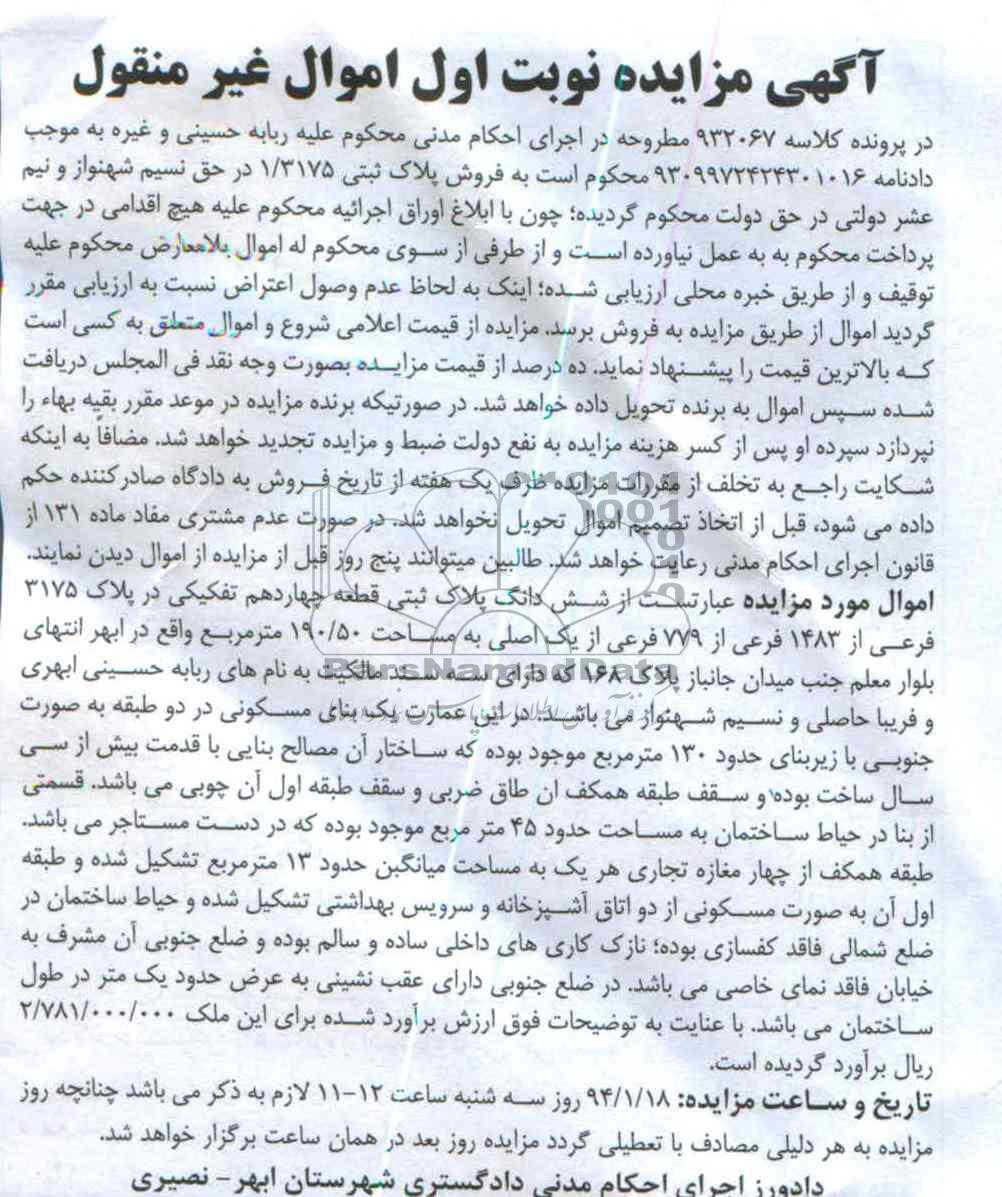 آگهی مزایده نوبت اول اموال غیر منقول
در پرونده کلاسه ۹۳۲۰۶۷ مطروحه در اجرای احکام مدنی محکوم علیه ربابه حسینی و غیره به موجب
دادنامه ۹۳۰۹۹۷۲۴۲۴۳۰۱۰۱۶ محکوم است به فروش پلاک ثبتی ۱/۳۱۷۵ در حق نسیم شهنواز و نیم
عشر دولتی در حق دولت محکوم گردیده؛ چون با ابلاغ اوراق اجرائیه محکوم علیه هیچ اقدامی در جهت
پرداخت محکوم به به عمل نیاورده است و از طرفی از سوی محکوم له اموال بلامعارض محکوم علیه
توقیف و از طریق خبره محلی ارزیابی شده؛ اینک به لحاظ عدم وصول اعتراض نسبت به ارزیابی مقرر
گردید اموال از طریق مزایده به فروش برسد. مزایده از قیمت اعلامی شروع و اموال متعلق به کسی است
که بالاترین قیمت را پیشنهاد نماید. ده درصد از قیمت مزایده بصورت وجه نقد فی المجلس دریافت
شده سپس اموال به برنده تحویل داده خواهد شد. در صورتیکه برنده مزایده در موعد مقرر بقیه بهاء را
نپردازد سپرده او پس از کسر هزینه مزایده به نفع دولت ضبط و مزایده تجدید خواهد شد. مضافاً به اینکه
شکایت راجع به تخلف از مقررات مزایده ظرف یک هفته از تاریخ فروش به دادگاه صادرکننده حکم
داده می شود، قبل از اتخاذ تصمیم اموال تحویل نخواهد شد. در صورت عدم مشتری مفاد ماده ۱۳۱ از
قانون اجرای احکام مدنی رعایت خواهد شد. طالبین میتوانند پنج روز قبل از مزایده از اموال دیدن نمایند.
اموال مورد مزایده عبارتست از شش دانگ پلاک ثبتی قطعه چهاردهم تفکیکی در پلاک ۳۱۷۵
فرعی از ۱۴۸۳ فرعی از ۷۷۹ فرعی از یک اصلی به مساحت ۱۹۰/۵۰ مترمربع واقع در ابهر انتهای
بلوار معلم جنب میدان جانباز پلاک ۱۶۸ که دارای سه سند مالکیت به نام های ربابه حسینی ابهری
و فریبا حاصلی و نسیم شهنواز می باشد. در این عمارت یک بنای مسکونی در دو طبقه به صورت
جنوبی با زیربنای حدود ۱۳۰ مترمربع موجود بوده که ساختار آن مصالح بنایی با قدمت بیش از سی
سال ساخت بوده و سقف طبقه همکف ان طاق ضربی و سقف طبقه اول آن چوبی می باشد. قسمتی
از بنا در حیاط ساختمان به مساحت حدود ۴۵ متر مربع موجود بوده که در دست مستاجر می باشد.
طبقه همکف از چهار مغازه تجاری هر یک به مساحت میانگین حدود ۱۳ مترمربع تشکیل شده و طبقه
اول آن به صورت مسکونی از دو اتاق آشپزخانه و سرویس بهداشتی تشکیل شده و حیاط ساختمان در
ضلع شمالی فاقد کفسازی بوده؛ نازک کاری های داخلی ساده و سالم بوده و ضلع جنوبی آن مشرف به
خیابان فاقد نمای خاصی می باشد. در ضلع جنوبی دارای عقب نشینی به عرض حدود یک متر در طول
ساختمان می باشد. با عنایت به توضیحات فوق ارزش برآورد شده برای این ملک ۲/۷۸۱/۰۰۰/۰۰۰
ریال برآورد گردیده است.
تاریخ و ساعت مزایده: ۹۴/۱/۱۸ روز سه شنبه ساعت ۱۲-۱۱ لازم به ذکر می باشد چنانچه روز
مزایده به هر دلیلی مصادف با تعطیلی گردد مزایده روز بعد در همان ساعت برگزار خواهد شد.
دادورز اجرای احکام مدنی دادگستری شهرستان ابهر - نصیری
ParsNamadData